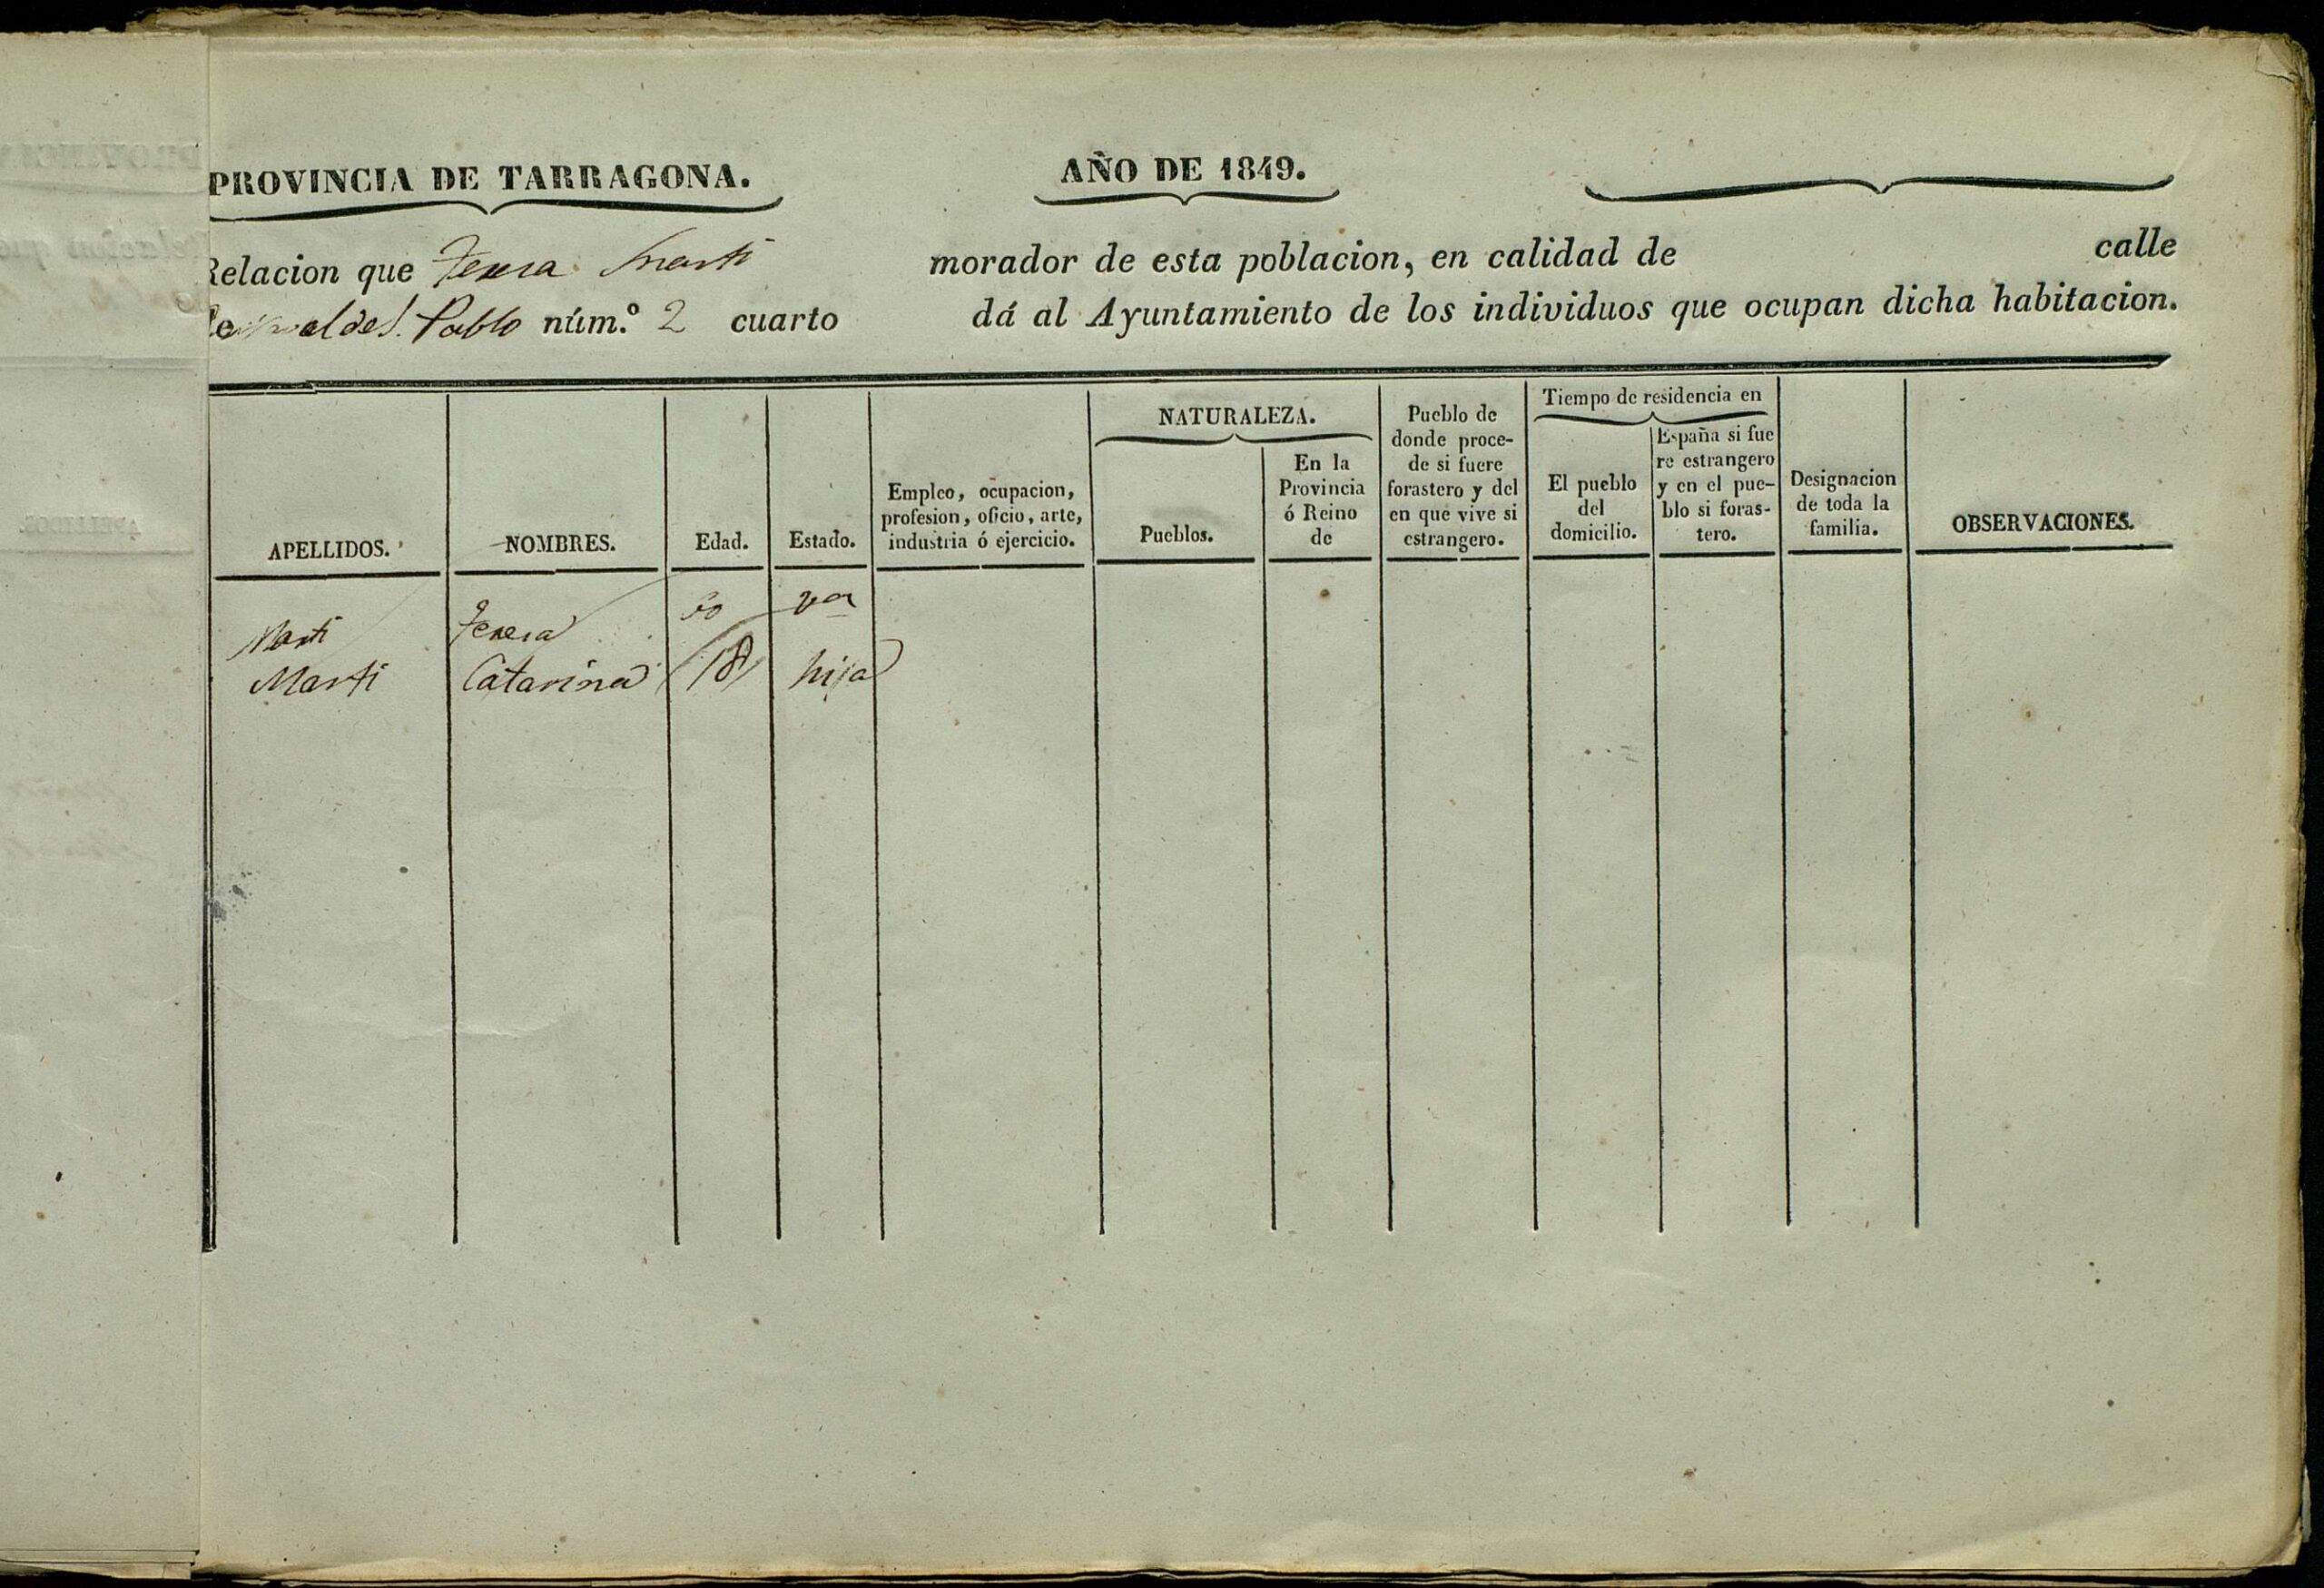 PROVINCIA DE TARRAGONA.
AÑO DE 1849.
Relacion que Teresa Marti morador de esta poblacion, en calidad de calle
de S. Pablo núm.º 2 cuarto dá al Ayuntamiento de los individuos que ocupan dicha habitacion.
APELLIDOS.
NOMBRES.
Edad.
Estado.
Empleo, ocupacion,
profesion, oficio, arte,
industria ó ejercicio.
NATURALEZA.
Pueblos.
En la
Provincia
ó Reino
de
Pueblo de
donde proce-
de si fuere
forastero y del
en que vive si
estrangero.
Tiempo de residencia en
El pueblo
del
domicilio.
España si fue
re estrangero
y en el pue-
blo si foras-
tero.
Designacion
de toda la
familia.
OBSERVACIONES.
Marti Teresa vda
Marti Catarina 18 hija